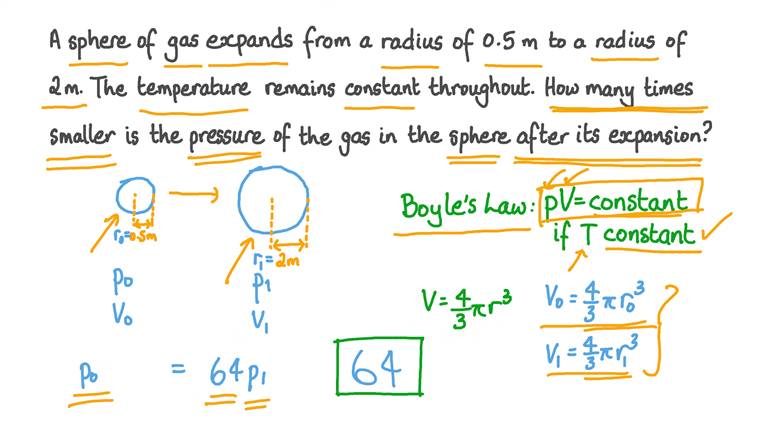 A sphere of gas expands from a radius of 0.5 m to a radius of
2m. The temperature remains constant throughout. How many times
smaller is the pressure of the gas in the sphere after its expansion?
r₀=0.5m
r₁=2m
p₀
p₁
V₀
V₁
Boyle's Law: pV=constant
if T constant
V=4/3πr³
V₀=4/3πr₀³
V₁=4/3πr₁³
p₀ = 64p₁
64